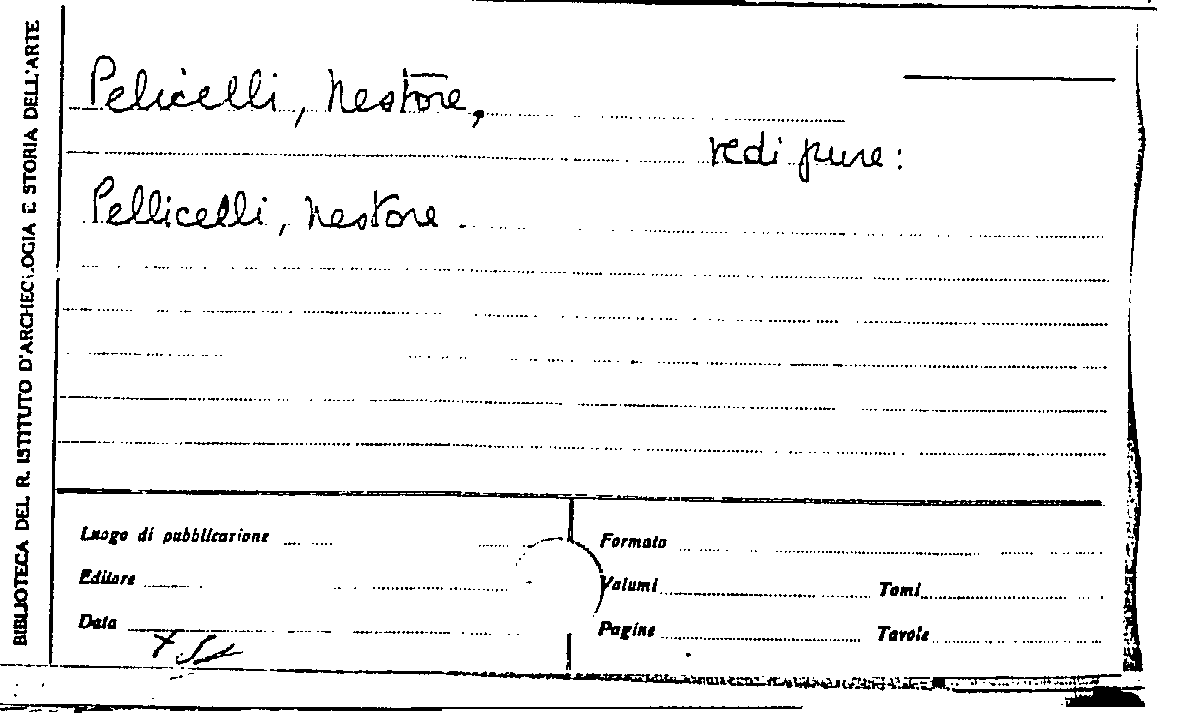 BIBLIOTECA DEL R. ISTITUTO D'ARCHEOLOGIA E STORIA DELL'ARTE
Pelicelli, Nestore,
vedi pure:
Pellicelli, Nestore.
Luogo di pubblicazione
Formato
Editore
Volumi
Tomi
Data
Pagine
Tavole